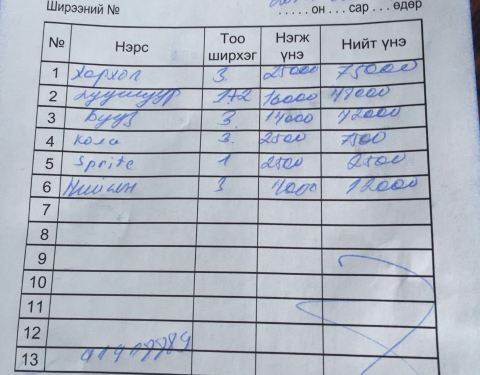 Ширээний №
..... он ... сар ... өдөр
№ Нэрс Тоо ширхэг Нэгж үнэ Нийт үнэ
1 Хорхог 3 25000 75000
2 Хуушуур 16000 48000
3 Бууз 3 14000 42000
4 Кола 3 2500 7500
5 Sprite 1 2500 2500
6 3 4000 12000
7
8
9
10
11
12
13